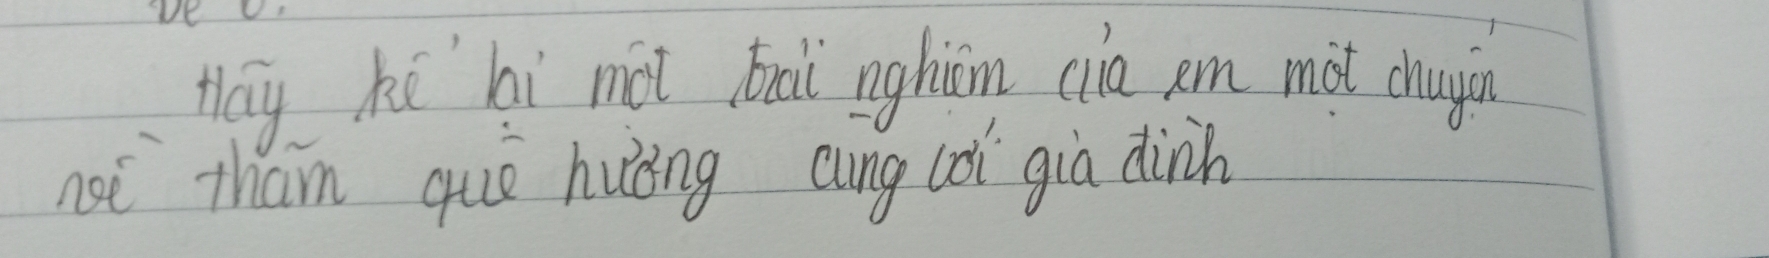 Đề 6:
Hãy kể lại một trải nghiệm của em một chuyến
về thăm quê hương cùng với gia đình